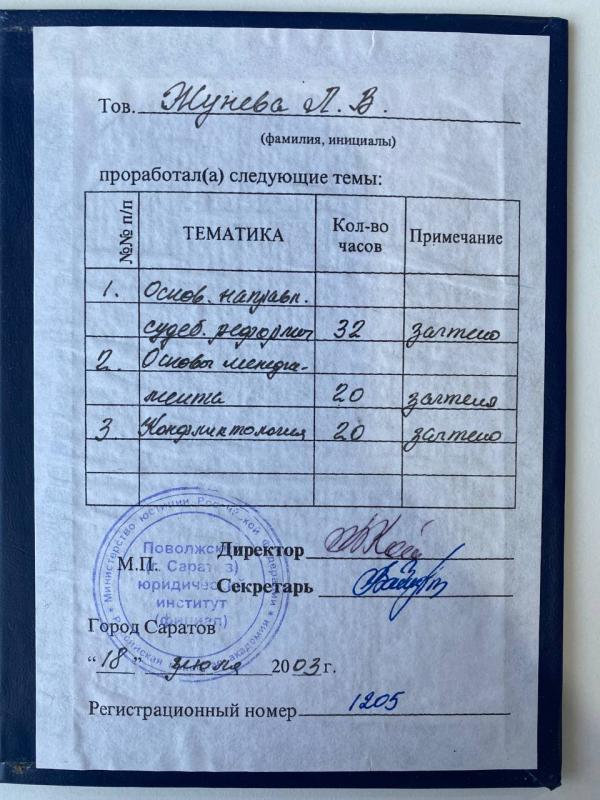 Тов. Жунева Л. В.
(фамилия, инициалы)
проработал(а) следующие темы:
№№ п/п ТЕМАТИКА Кол-во часов Примечание
1. Основ. направл.
судеб. реформы 32 зачтено
2. Основы менедж-
мента 20 зачтено
3. Конфликтология 20 зачтено
Министерство юстиции Российской Федерации
Российская академия
Поволжский
(г. Саратов)
юридический
институт
(филиал)
Директор
М.П.
Секретарь
Город Саратов
“18” июня 2003 г.
Регистрационный номер 1205